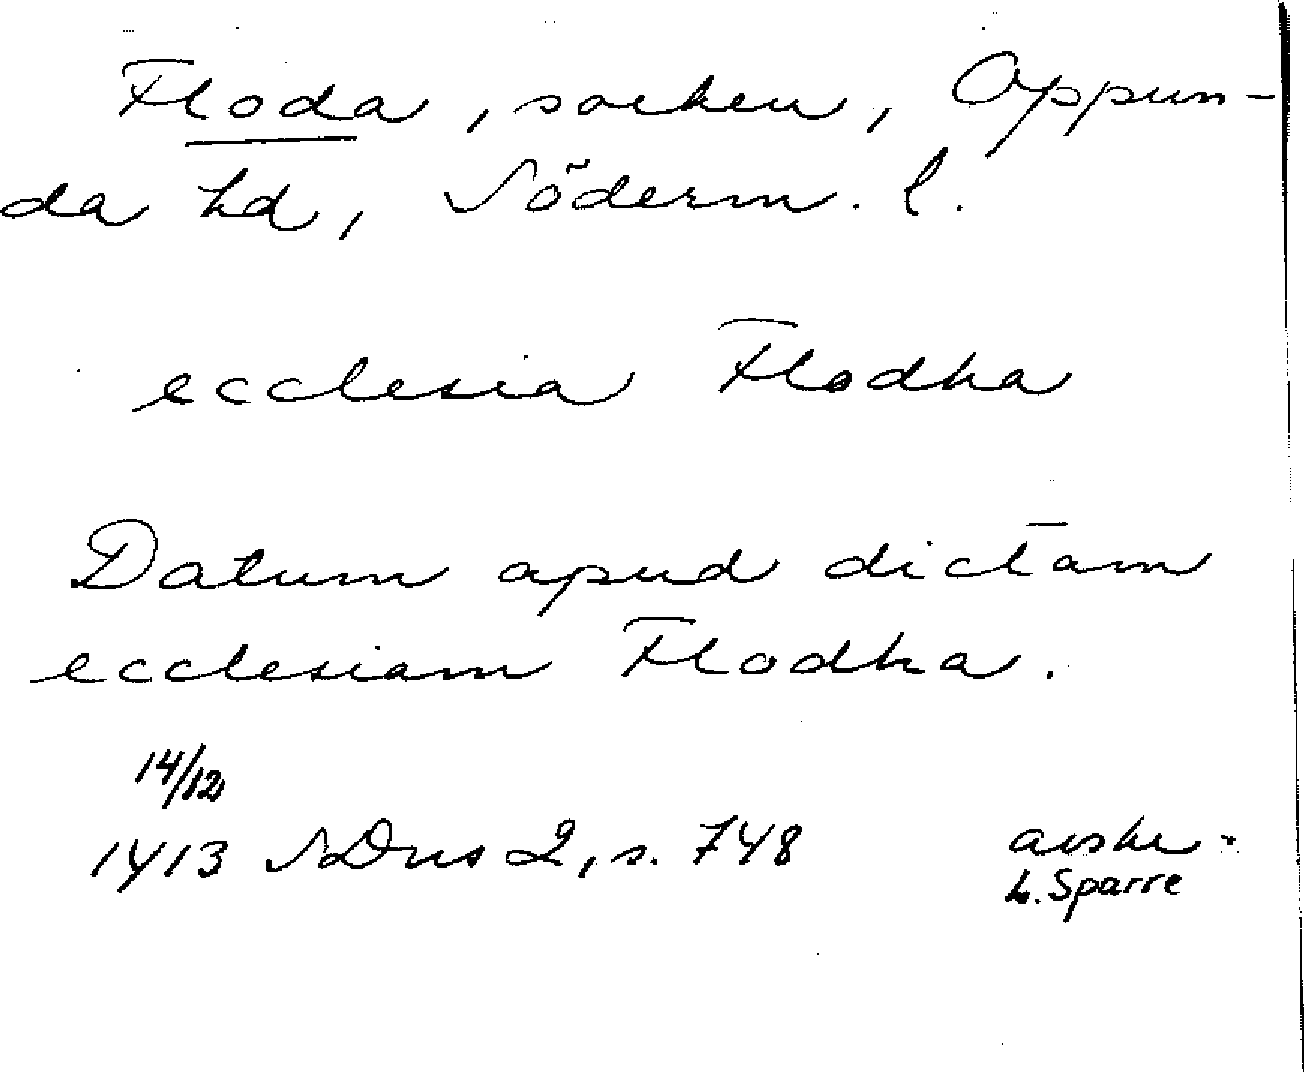 Floda, socken, Oppun-
da hd, Söderm. l.
ecclesia Flodha
Datum apud dictam
ecclesiam Flodha.
14/12
1413 SDns 2, s. 748
avskr.
L. Sparre